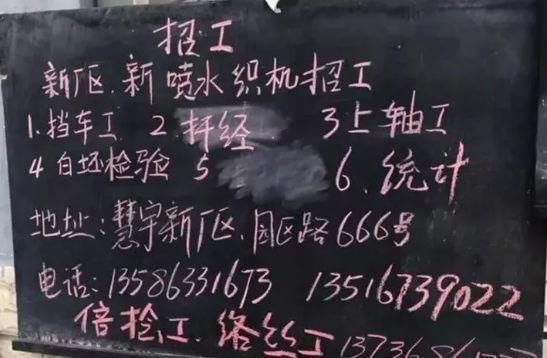 招工
新厂区.新喷水织机招工
1.挡车工 2.扦经 3上轴工
4白坯检验 5 6、统计
地址:慧宇新厂区,园区路666号
电话:13586331673 13516739022
倍捡工.络丝工